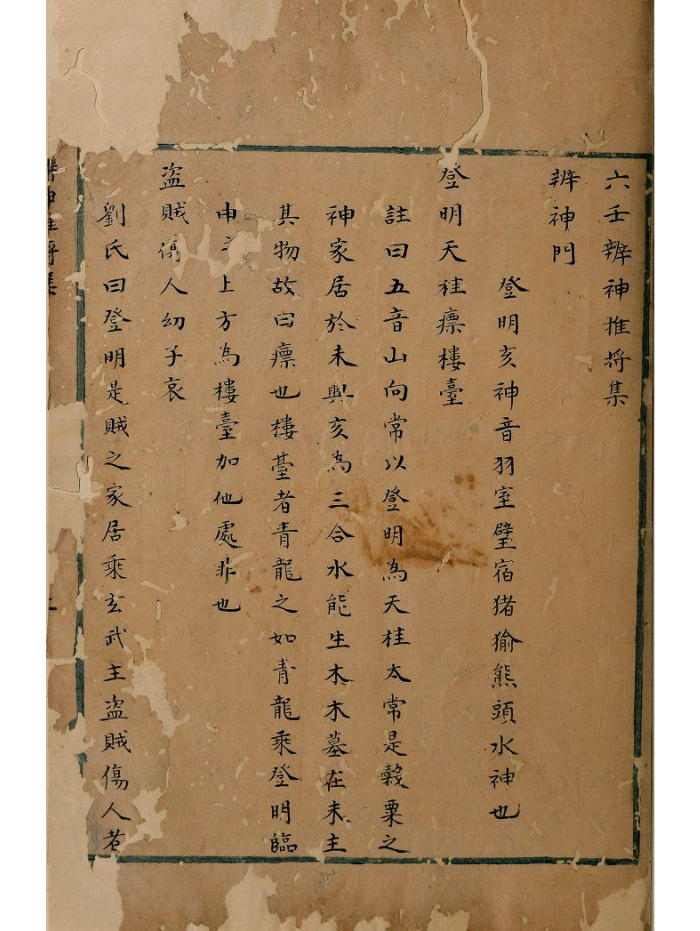 六壬辨神推将集
辨神門
登明亥神音羽室壁宿猪㺄熊頭水神也
登明天柱廪樓臺
註曰五音山向常以登明為天柱太常是榖粟之
神家居於未與亥為三合水能生木木墓在未主
其物故曰廪也樓臺者青龍之如青龍乘登明臨
申 上方為樓臺加他處非也
盗賊傷人幼子哀
劉氏曰登明是賊之家居乘玄武主盗賊傷人若
神推将集